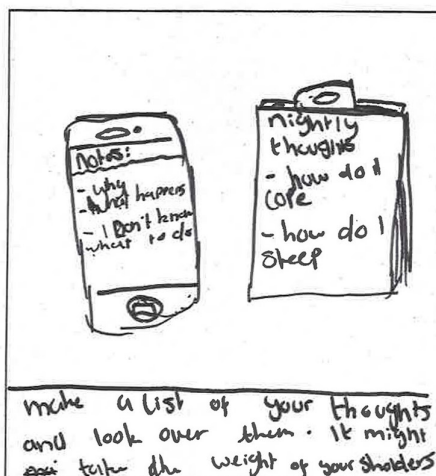 notes:
- why
- what happens
- I Don't know
what to do
nightly
thoughts
- how do I
cope
- how do I
sleep
make a list of your thoughts
and look over them. It might
take the weight of your sholders